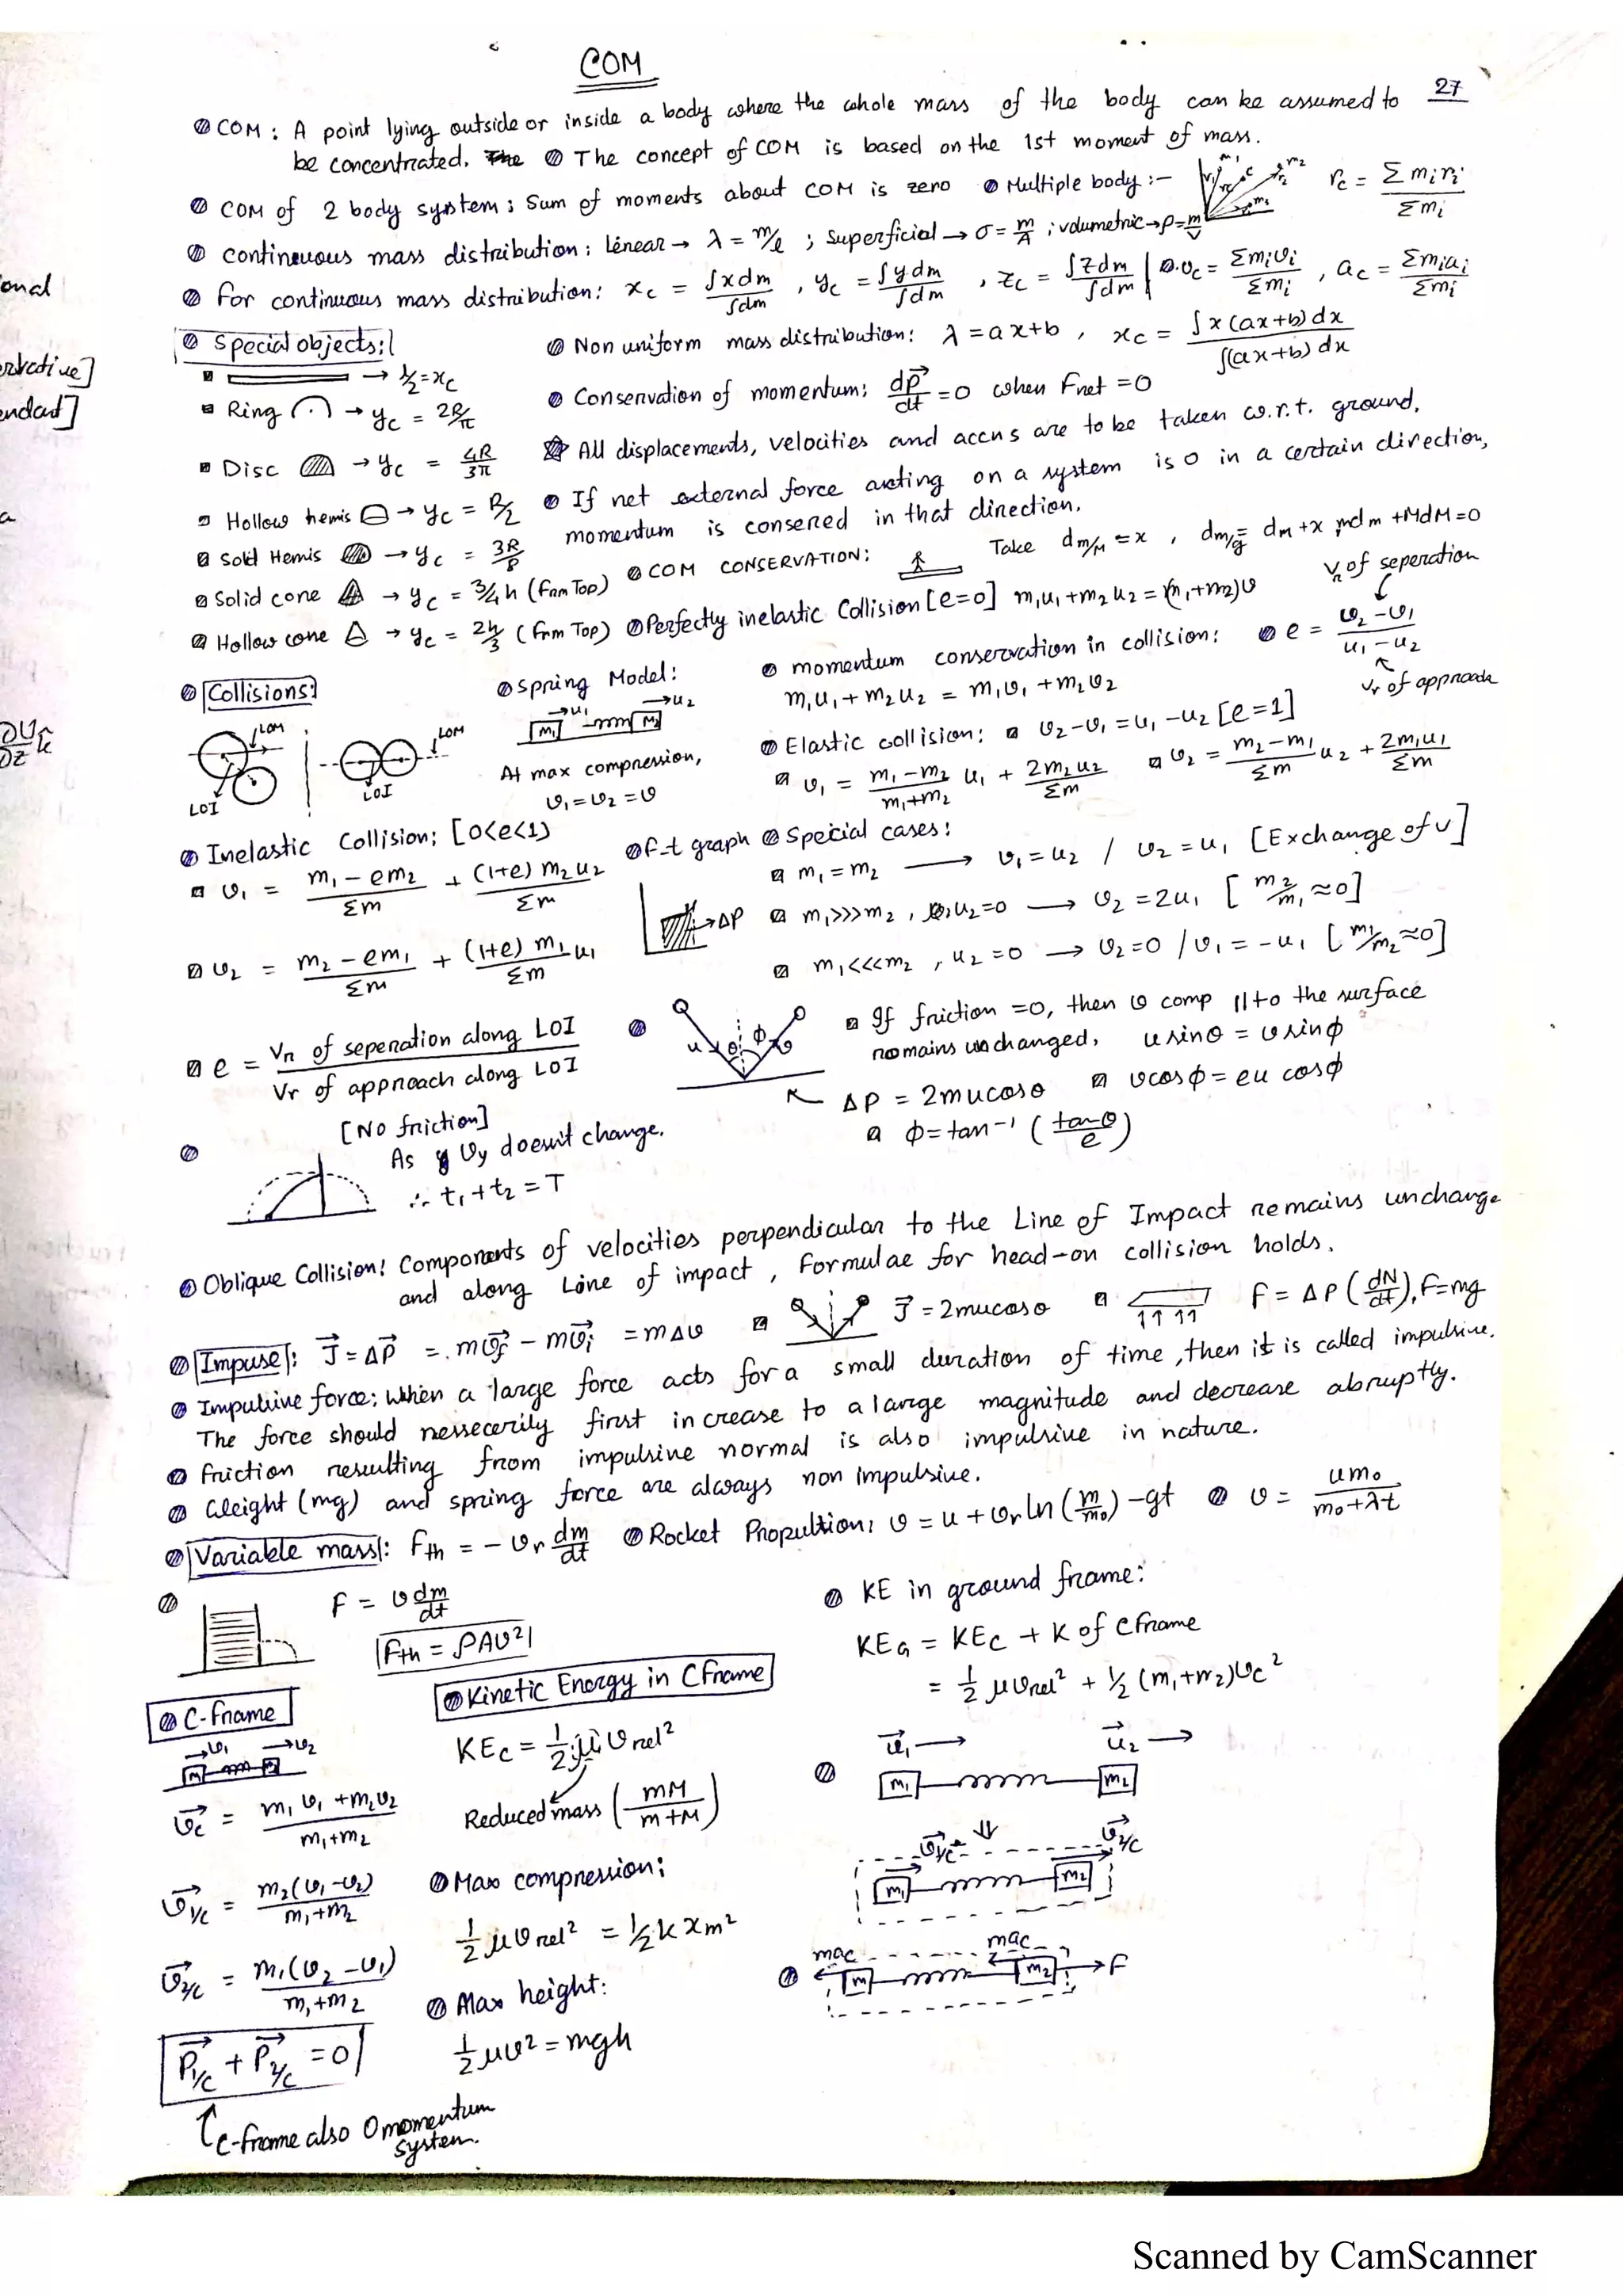 COM
27
COM : A point lying outside or inside a body where the whole mass of the body can be assumed to
be concentrated. The concept of COM is based on the 1st moment of mass.
COM of 2 body system : Sum of moments about COM is zero Multiple body :- m1 m2 r1 rc C r2 m3 rc = Σmiri / Σmi
continuous mass distribution : linear → λ = m/l ; superficial → σ = m/A ; volumetric → ρ = m/V
For continuous mass distribution : xc = ∫xdm / ∫dm , yc = ∫ydm / ∫dm , zc = ∫zdm / ∫dm | vc = Σmivi / Σmi , ac = Σmiai / Σmi
Special objects :
→ l/2 = xc
Ring → yc = 2R/π
Disc → yc = 4R/3π
Hollow hemis → yc = R/2
Solid Hemis → yc = 3R/8
Solid cone → yc = 3/4 h (from Top)
Hollow cone → yc = 2h/3 (from Top)
Non uniform mass distribution : λ = ax+b , xc = ∫x(ax+b)dx / ∫(ax+b)dx
Conservation of momentum : dp/dt = 0 when Fnet = 0
All displacements, velocities and accns are to be taken w.r.t. ground.
If net external force acting on a system is 0 in a certain direction,
momentum is conserved in that direction.
COM CONSERVATION : Take dm/M = x , dm/g = dM + x mdm + MdM = 0
Perfectly inelastic Collision [e=0] m1u1 + m2u2 = (m1+m2)v
Collisions
LOM
LOI
LOM
LOI
Spring Model :
→u1 →u2
m1 M2
At max compression,
v1 = v2 = v
momentum conservation in collision :
m1u1 + m2u2 = m1v1 + m2v2
Vr of seperation
e = v2 - v1 / u1 - u2
Vr of approach
Elastic collision : v2 - v1 = u1 - u2 [e=1]
v1 = m1-m2 / m1+m2 u1 + 2m2u2 / Σm
v2 = m2-m1 / Σm u2 + 2m1u1 / Σm
Inelastic Collision : [0<e<1)
v1 = m1 - em2 / Σm + (1+e) m2u2 / Σm
v2 = m2 - em1 / Σm + (1+e) m1 u1 / Σm
F-t graph
→ΔP
Special cases :
m1 = m2 → v1 = u2 / v2 = u1 [Exchange of v]
m1>>>m2 , u2=0 → v2 = 2u1 [m2/m1 ≈ 0]
m1<<<m2 , u2 = 0 → v2 = 0 / v1 = -u1 [m1/m2 ≈ 0]
e = Vr of seperation along LOI / Vr of approach along LOI
[No friction]
u θ φ v
If friction = 0, then v comp || to the surface
remains unchanged, u sinθ = v sinφ
ΔP = 2mucosθ vcosφ = eu cosφ
φ = tan-1 (tanθ / e)
As vy doesn't change.
∴ t1 + t2 = T
Oblique Collision : Components of velocities perpendicular to the Line of Impact remains unchange
and along Line of impact , Formulae for head-on collision holds.
Impuse : J = ΔP = mvf - mvi = mΔv J = 2mucosθ F = ΔP (dN/dt), F=mg
Impulsive force : When a large force acts for a small duration of time, then it is called impulsive.
The force should nessecerily first increase to a large magnitude and decrease abruptly.
Friction resulting from impulsive normal is also impulsive in nature.
Weight (mg) and spring force are always non impulsive.
Variable mass : Fth = - vr dm/dt Rocket Propultion : v = u + vr ln (m/m0) - gt v = um0 / m0 + λt
F = v dm/dt
Fth = ρAv²
C-frame
→v1 →v2
vc = m1v1 + m2v2 / m1+m2
v1/c = m2(v1-v2) / m1+m2
v2/c = m1(v2-v1) / m1+m2
P1/c + P2/c = 0
C-frame also 0 momentum
system.
Kinetic Energy in C Frame
KEc = 1/2 μ vrel²
Reduced mass (mM / m+M)
Max compression :
1/2 μ vrel² = 1/2 k xm²
Max height :
1/2 μv² = mgh
KE in ground frame :
KEG = KEc + K of C frame
= 1/2 μvrel² + 1/2 (m1+m2)vc²
u1 → u2 →
m1 m2
v1/c v2/c
m1 m2
mac mac
m1 m2 → F
onal
ervative]
endant]
∂U/∂z k
Scanned by CamScanner